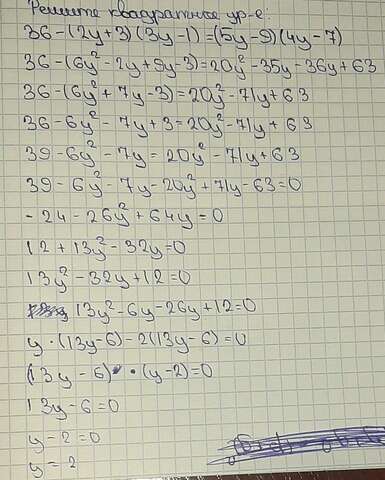 Решите квадратное ур-е:
36-(2y+3)(3y-1)=(5y-9)(4y-7)
36-(6y²-2y+9y-3)=20y²-35y-36y+63
36-(6y²+7y-3)=20y²-71y+63
36-6y²-7y+3=20y²-71y+63
39-6y²-7y=20y²-71y+63
39-6y²-7y-20y²+71y-63=0
-24-26y²+64y=0
12+13y²-32y=0
13y²-32y+12=0
13y²-6y-26y+12=0
y·(13y-6)-2(13y-6)=0
(13y-6)·(y-2)=0
13y-6=0
y-2=0
y=2